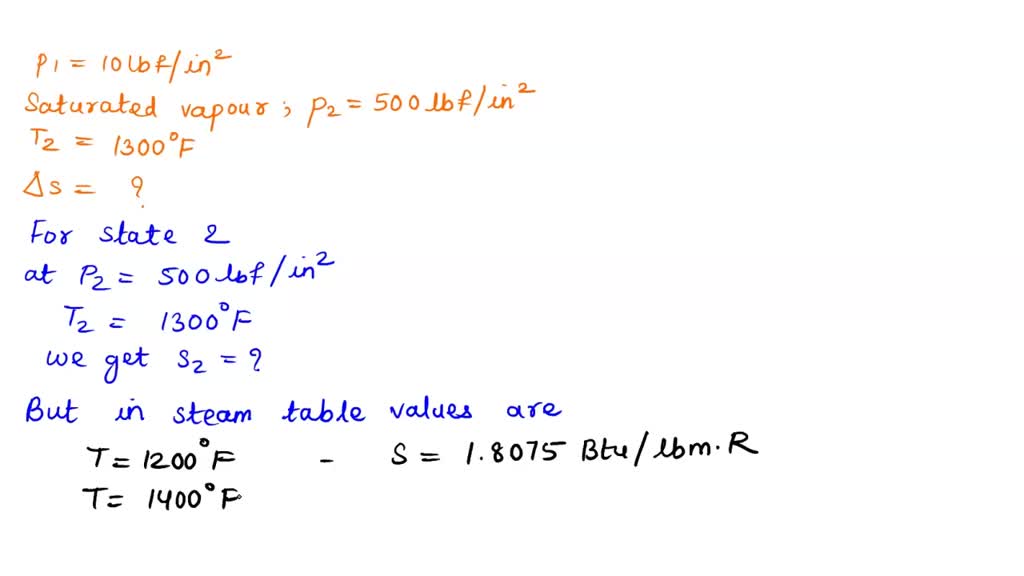 P1 = 10 lbf/in²
Saturated vapour; P2 = 500 lbf/in²
T2 = 1300°F
Δs = ?
For state 2
at P2 = 500 lbf/in²
T2 = 1300°F
we get s2 = ?
But in steam table values are
T = 1200°F - S = 1.8075 Btu/lbm.R
T = 1400°F